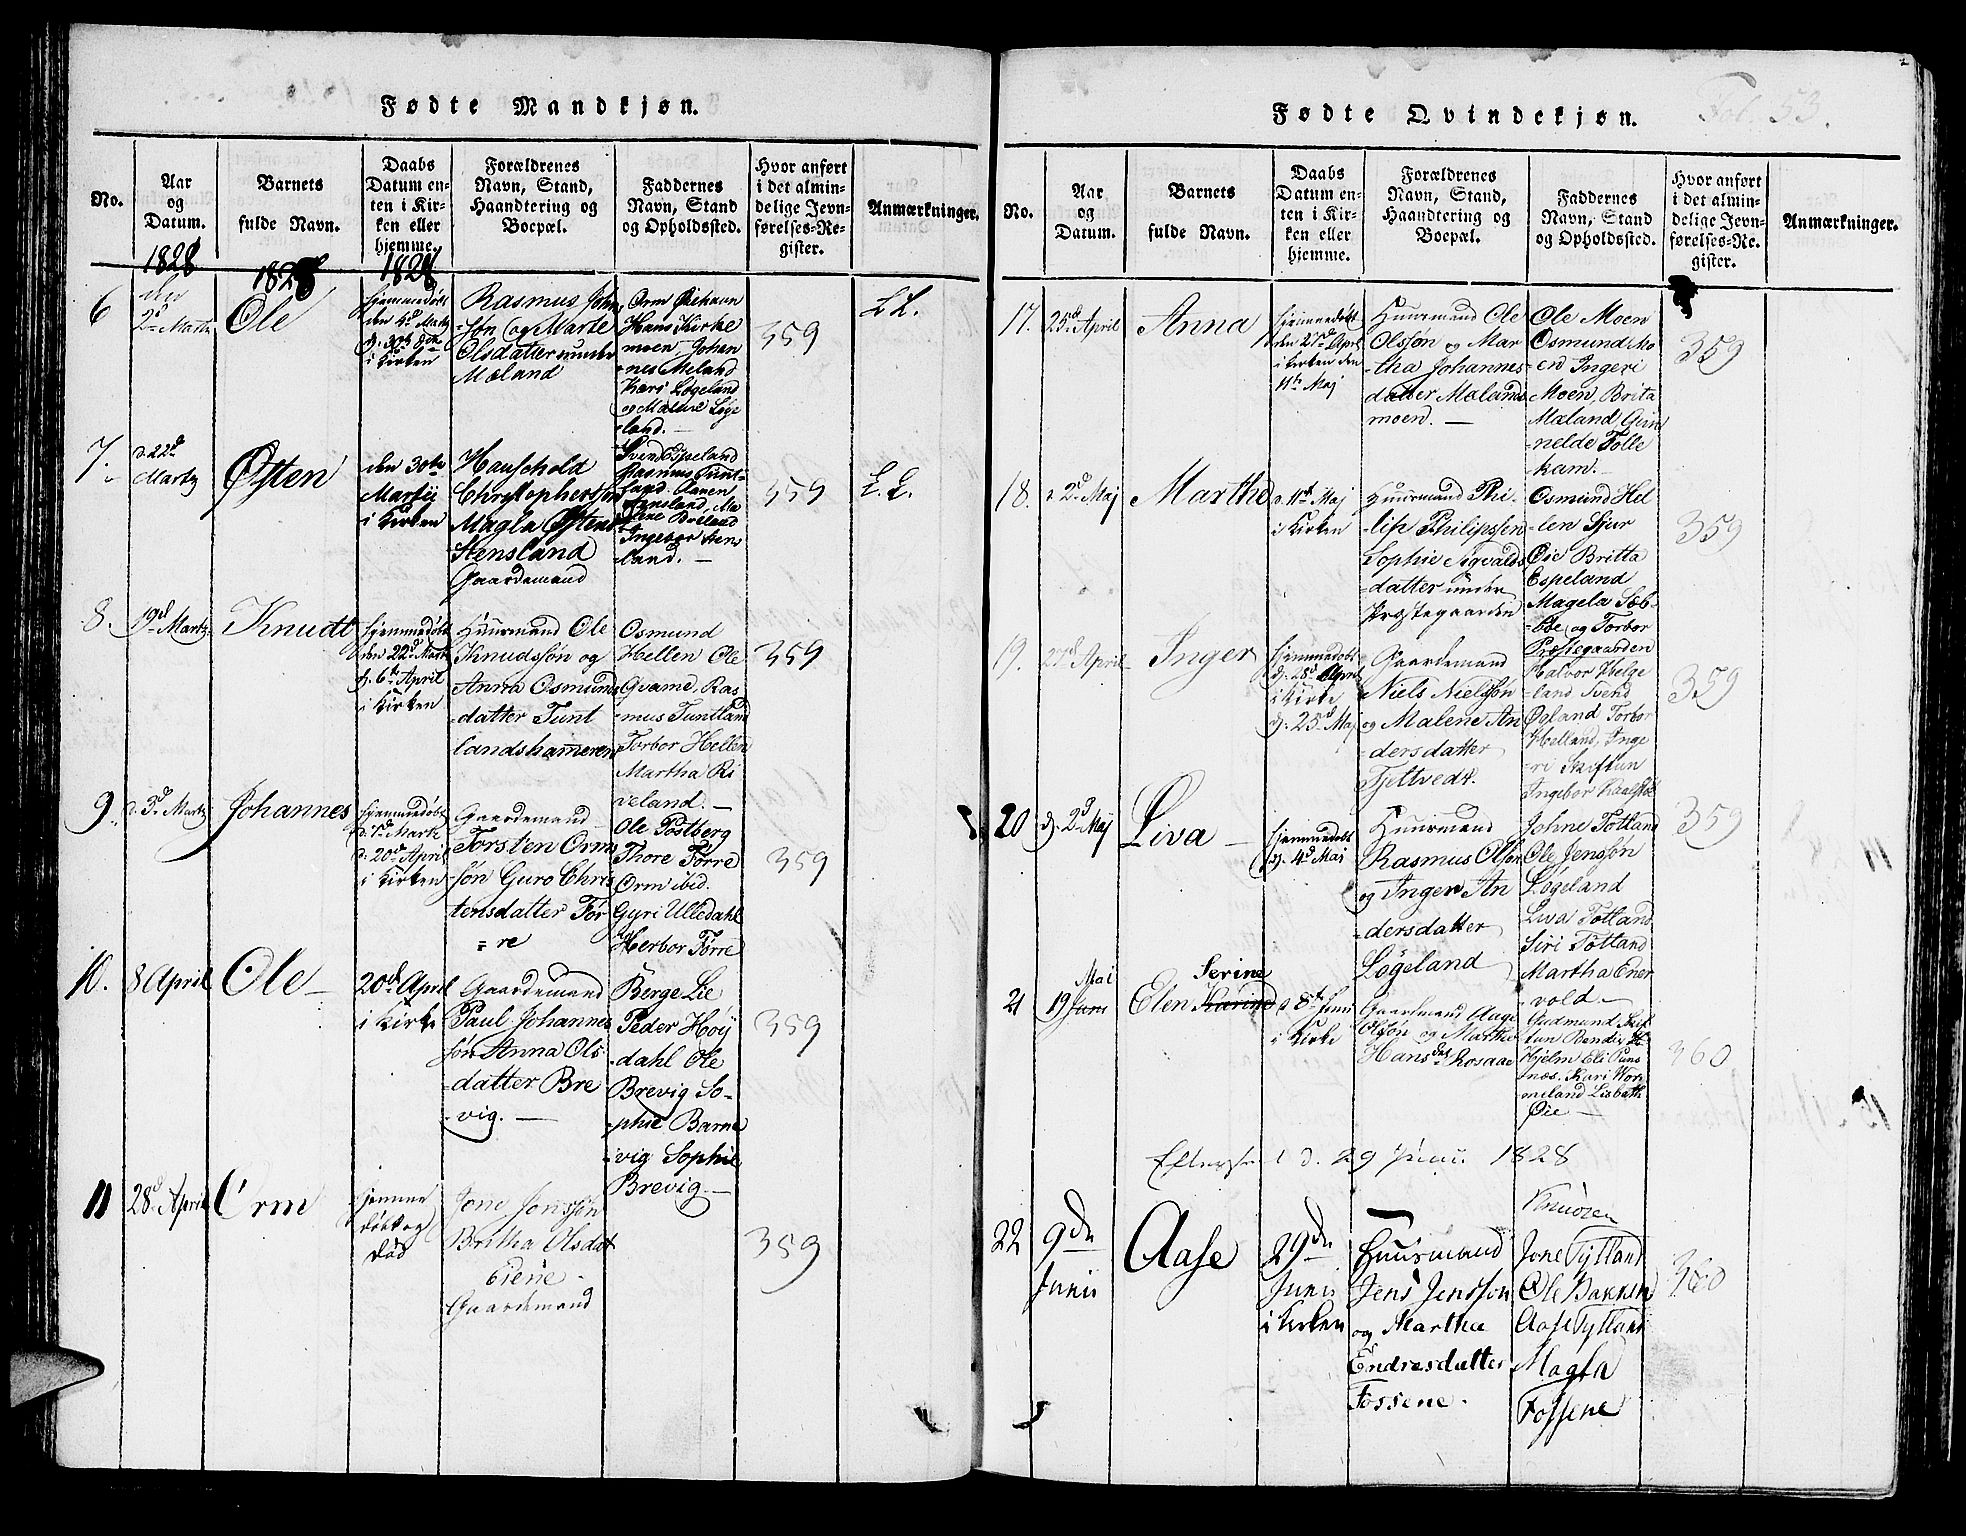 Fødte Mandkjøn.
No.
Aar
og
Datum.
Barnets
fulde Navn.
Daabs
Datum en-
ten i Kir-
ken eller
hjemme.
Forældrenes
Navn, Stand,
Haandtering og
Boepæl.
Faddernes
Navn, Stand
og Opholdssted.
Hvor anført
i det almin-
delige Jevn-
førelses-Re-
gister.
Anmærkninger.
1828
1828
1828
6
den
2d Martz
Ole
hjemmedøbt
den 4d Martz
i Kirken
Rasmus John
-søn og Marte
Olsdatter under
Mæland
Orm
Hans Kirke
moen Johan
-nes Meland
Kari Løgeland
og Malene Løge
land. -
359
L L.
7.
d. 22d
Martz
Østen
den 30te
Martii
i Kirken
Hauschold
Christophersøn
Magla Østens
Stensland
Gaardemand
Svend Espeland
Rasmus Tunt-
land
Ma
Ingebor Stens
-land. -
359
L. L.
8.
19d Martz
Knudt
hjemmedøbt
den 22d Martz
d. 6te April
i Kirken
Huusmand Ole
Knudssøn og
Anna Osmunds
-datter Tunt
landshammeren
Osmund
Hellen Ole
Qvame, Ras
-mus Tuntland
Torbor Hellen
Martha Ri
veland. -
359
9.
d. 5d Martz
Johannes
hjemmedøbt
d. 7d Martz
d. 20de April
i Kirken
Gaardemand
Torsten Orm
søn Guro Chris
tensdatter Tør
=re
Ole Postberg
Thore Tørre
Orm ibid.
Gyri Ulledahl
Herbor Tørre
359
10.
8 April
Ole -
20de April
i Kirke
Gaardemand
Paul Johannes
søn Anna Ols
-datter Bre
-vig. -
Berge Lie
Peder Høy
-dahl Ole
Brevig So-
-phie Barne
-vig Sophie
Brevig. -
359
11
28d April
Orm
hjemme
døbt og
død
Jone Jonssøn
Britha Olsdat
Eiene -
Gaardemand
359
Fødte Qvindekjøn.
Fol. 53.
No.
Aar
og
Datum.
Barnets
fulde Navn.
Daabs
Datum en-
ten i Kir-
ken eller
hjemme.
Forældrenes
Navn, Stand,
Haandtering og
Boepæl.
Faddernes
Navn, Stand
og Opholdssted.
Hvor anført
i det almin-
delige Jevn-
førelses-Re-
gister.
Anmærkninger.
17.
25d April
Anna
hjemmedøbt
den 27d April
i Kirken den
11te Maj
Huusmand Ole
Olssøn og Mar
-tha Johannes
datter Mælands
moen. -
Ole Moen
Osmund Mo
en Ingeri
Moen, Brita
Mæland, Gun
nelde Tolle
kam. -
359
18.
d 2d Maj
Marthe
d. 11te Maj
i Kirken
Huusmand Phi-
-lip Philipssen
Sophie Sigvalds
-datter under
Præstegaarden
Osmund Hel
-len Sjur
Øie Britta
Espeland
Magela Sæb-
-Eie og Torbor
Præstegaarden
359
19.
27d April
Inger
hjemmedøbt
d. 28d April
i Kirke
d. 25d Maj
Gaardemand
Niels Nielssøn
og Malene An
-dersdatter
Tjeltvedt.
Halvor Helge
land Svend
Øgland Torbor
Helland, Inge
-ri Skiftun
Ingebor
359
20
d. 2d Maj
Liva -
hjemmedøbt
d. 4d Maj
Huusmand
Rasmus Olsøn
og Inger An
-dersdatter
Løgeland
Johne Totland
Ole Jenssøn
Løgeland
Liva Totland
Siri Totland
Martha Ener
vold -
359
21
Mai
19 Juni
Serine
Elen Karine
d 8te Juni
i Kirke
Gaardmand Aage
Olssøn og Martha
Hansdat Rosaae
Gudmund Skif
tun Bendix
Hjelm Eli Puns
næs. Kari Wor
meland Lisbeth
Øie -
360
Efterseet d. 29 Juni 1828
Knudzen
22
9de
Junii
Aase
29de
Junii
i Kirken
Huusmand
Jens Jenssøn
og Martha
Endresdatter
Fossene.
Jone Tytland
Ole Bakken
Aase Tytland
Magla
Fossene
360